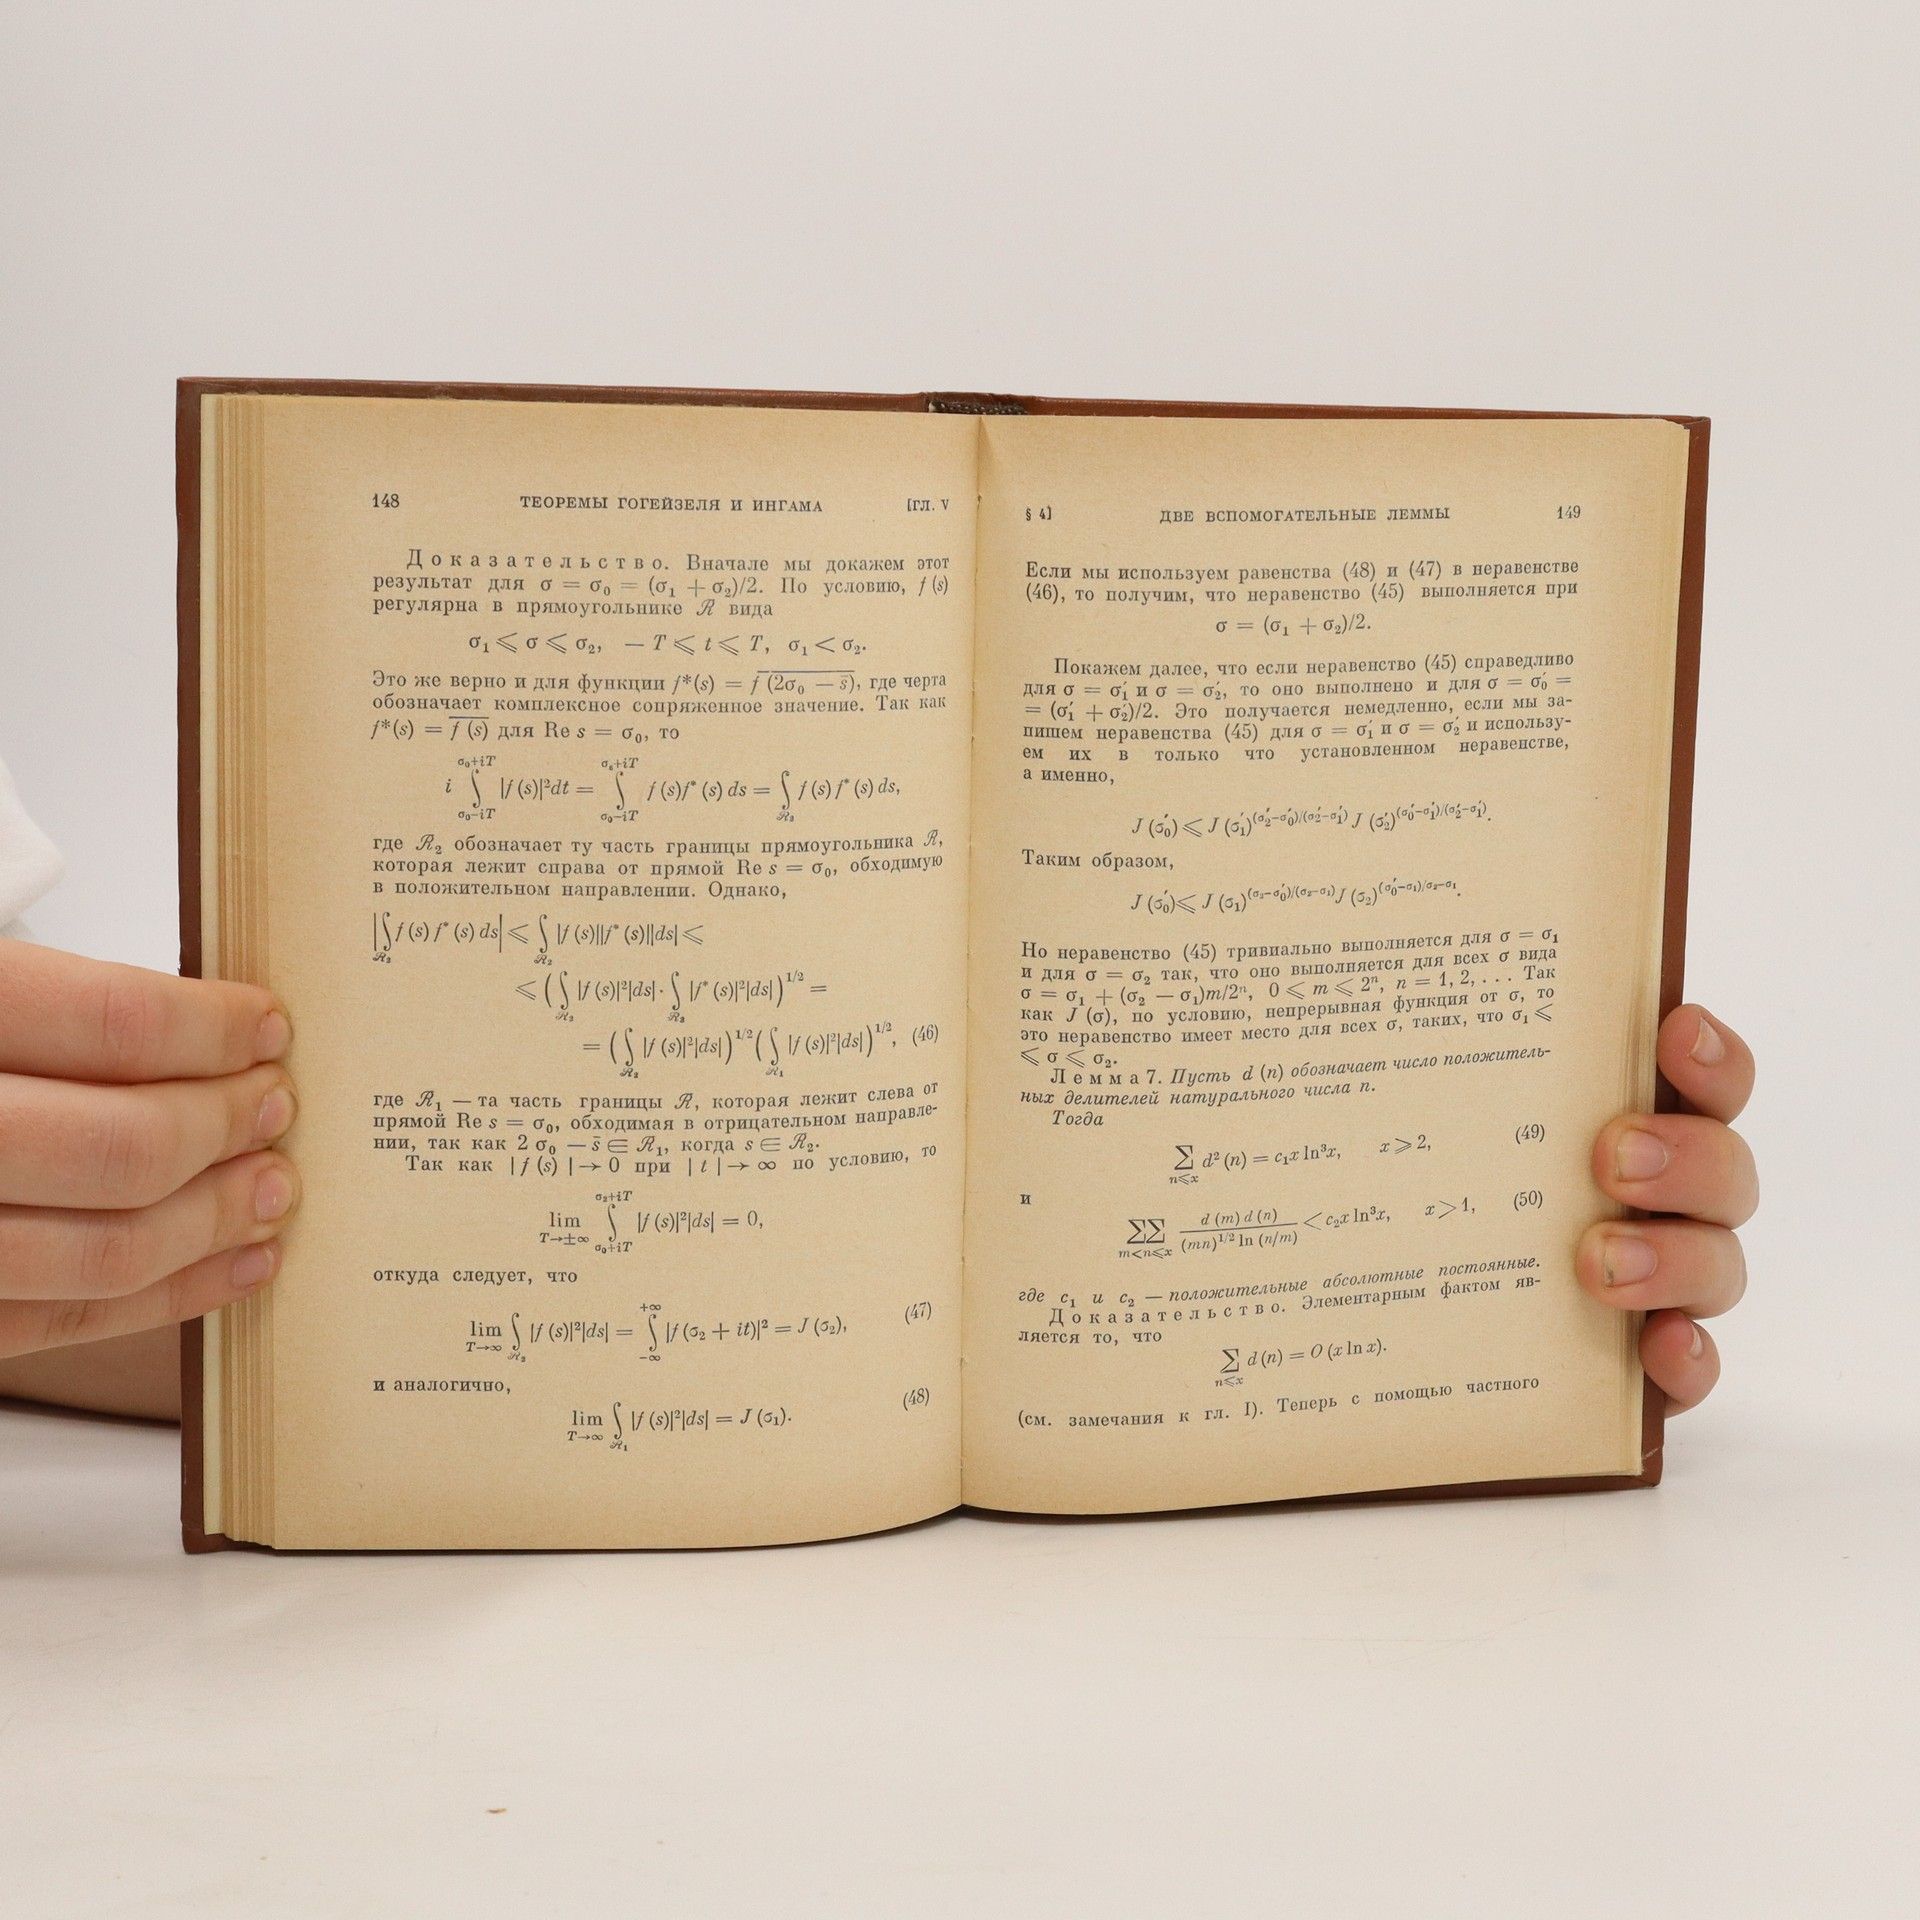 148 ТЕОРЕМЫ ГОГЕЙЗЕЛЯ И ИНГАМА [ГЛ. V
Доказательство. Вначале мы докажем этот
результат для σ = σ₀ = (σ₁ + σ₂)/2. По условию, f (s)
регулярна в прямоугольнике ℛ вида
σ₁ ⩽ σ ⩽ σ₂, — T ⩽ t ⩽ T, σ₁ < σ₂.
Это же верно и для функции f*(s) = \overline{f (2σ₀ — \bar{s})}, где черта
обозначает комплексное сопряженное значение. Так как
f*(s) = \overline{f (s)} для Re s = σ₀, то
i ∫_{σ₀−iT}^{σ₀+iT} |f (s)|²dt = ∫_{σ₀−iT}^{σ₀+iT} f (s)f* (s) ds = ∫_{ℛ₂} f (s) f* (s) ds,
где ℛ₂ обозначает ту часть границы прямоугольника ℛ,
которая лежит справа от прямой Re s = σ₀, обходимую
в положительном направлении. Однако,
|∫_{ℛ₂} f (s) f* (s) ds| ⩽ ∫_{ℛ₂} |f (s)||f* (s)||ds| ⩽
⩽ (∫_{ℛ₂} |f (s)|²|ds| · ∫_{ℛ₂} |f* (s)|²|ds|)^{1/2} =
= (∫_{ℛ₂} |f (s)|²|ds|)^{1/2} (∫_{ℛ₁} |f (s)|²|ds|)^{1/2}, (46)
где ℛ₁ — та часть границы ℛ, которая лежит слева от
прямой Re s = σ₀, обходимая в отрицательном направле-
нии, так как 2 σ₀ — \bar{s} ∈ ℛ₁, когда s ∈ ℛ₂.
Так как | f (s) | → 0 при | t | → ∞ по условию, то
lim_{T→±∞} ∫_{σ₀+iT}^{σ₂+iT} |f (s)|²|ds| = 0,
откуда следует, что
lim_{T→∞} ∫_{ℛ₂} |f (s)|²|ds| = ∫_{−∞}^{+∞} |f (σ₂ + it)|² = J (σ₂), (47)
и аналогично,
lim_{T→∞} ∫_{ℛ₁} |f (s)|²|ds| = J (σ₁). (48)
§ 4] ДВЕ ВСПОМОГАТЕЛЬНЫЕ ЛЕММЫ 149
Если мы используем равенства (48) и (47) в неравенстве
(46), то получим, что неравенство (45) выполняется при
σ = (σ₁ + σ₂)/2.
Покажем далее, что если неравенство (45) справедливо
для σ = σ₁′ и σ = σ₂′, то оно выполнено и для σ = σ₀′ =
= (σ₁′ + σ₂′)/2. Это получается немедленно, если мы за-
пишем неравенства (45) для σ = σ₁′ и σ = σ₂′ и использу-
ем их в только что установленном неравенстве,
а именно,
J (σ₀′) ⩽ J (σ₁′)^{(σ₂′−σ₀′)/(σ₂′−σ₁′)} J (σ₂′)^{(σ₀′−σ₁′)/(σ₂′−σ₁′)}.
Таким образом,
J (σ₀′) ⩽ J (σ₁)^{(σ₂−σ₀′)/(σ₂−σ₁)} J (σ₂)^{(σ₀′−σ₁)/σ₂−σ₁}.
Но неравенство (45) тривиально выполняется для σ = σ₁
и для σ = σ₂ так, что оно выполняется для всех σ вида
σ = σ₁ + (σ₂ — σ₁)m/2ⁿ, 0 ⩽ m ⩽ 2ⁿ, n = 1, 2, . . . Так
как J (σ), по условию, непрерывная функция от σ, то
это неравенство имеет место для всех σ, таких, что σ₁ ⩽
⩽ σ ⩽ σ₂.
Лемма 7. Пусть d (n) обозначает число положитель-
ных делителей натурального числа n.
Тогда
∑_{n⩽x} d² (n) = c₁x ln³x, x ⩾ 2, (49)
и
∑∑_{m<n⩽x} \frac{d (m) d (n)}{(mn)^{1/2} ln (n/m)} < c₂x ln³x, x > 1, (50)
где c₁ и c₂ — положительные абсолютные постоянные.
Доказательство. Элементарным фактом яв-
ляется то, что
∑_{n⩽x} d (n) = O (x ln x).
(см. замечания к гл. I). Теперь с помощью частного